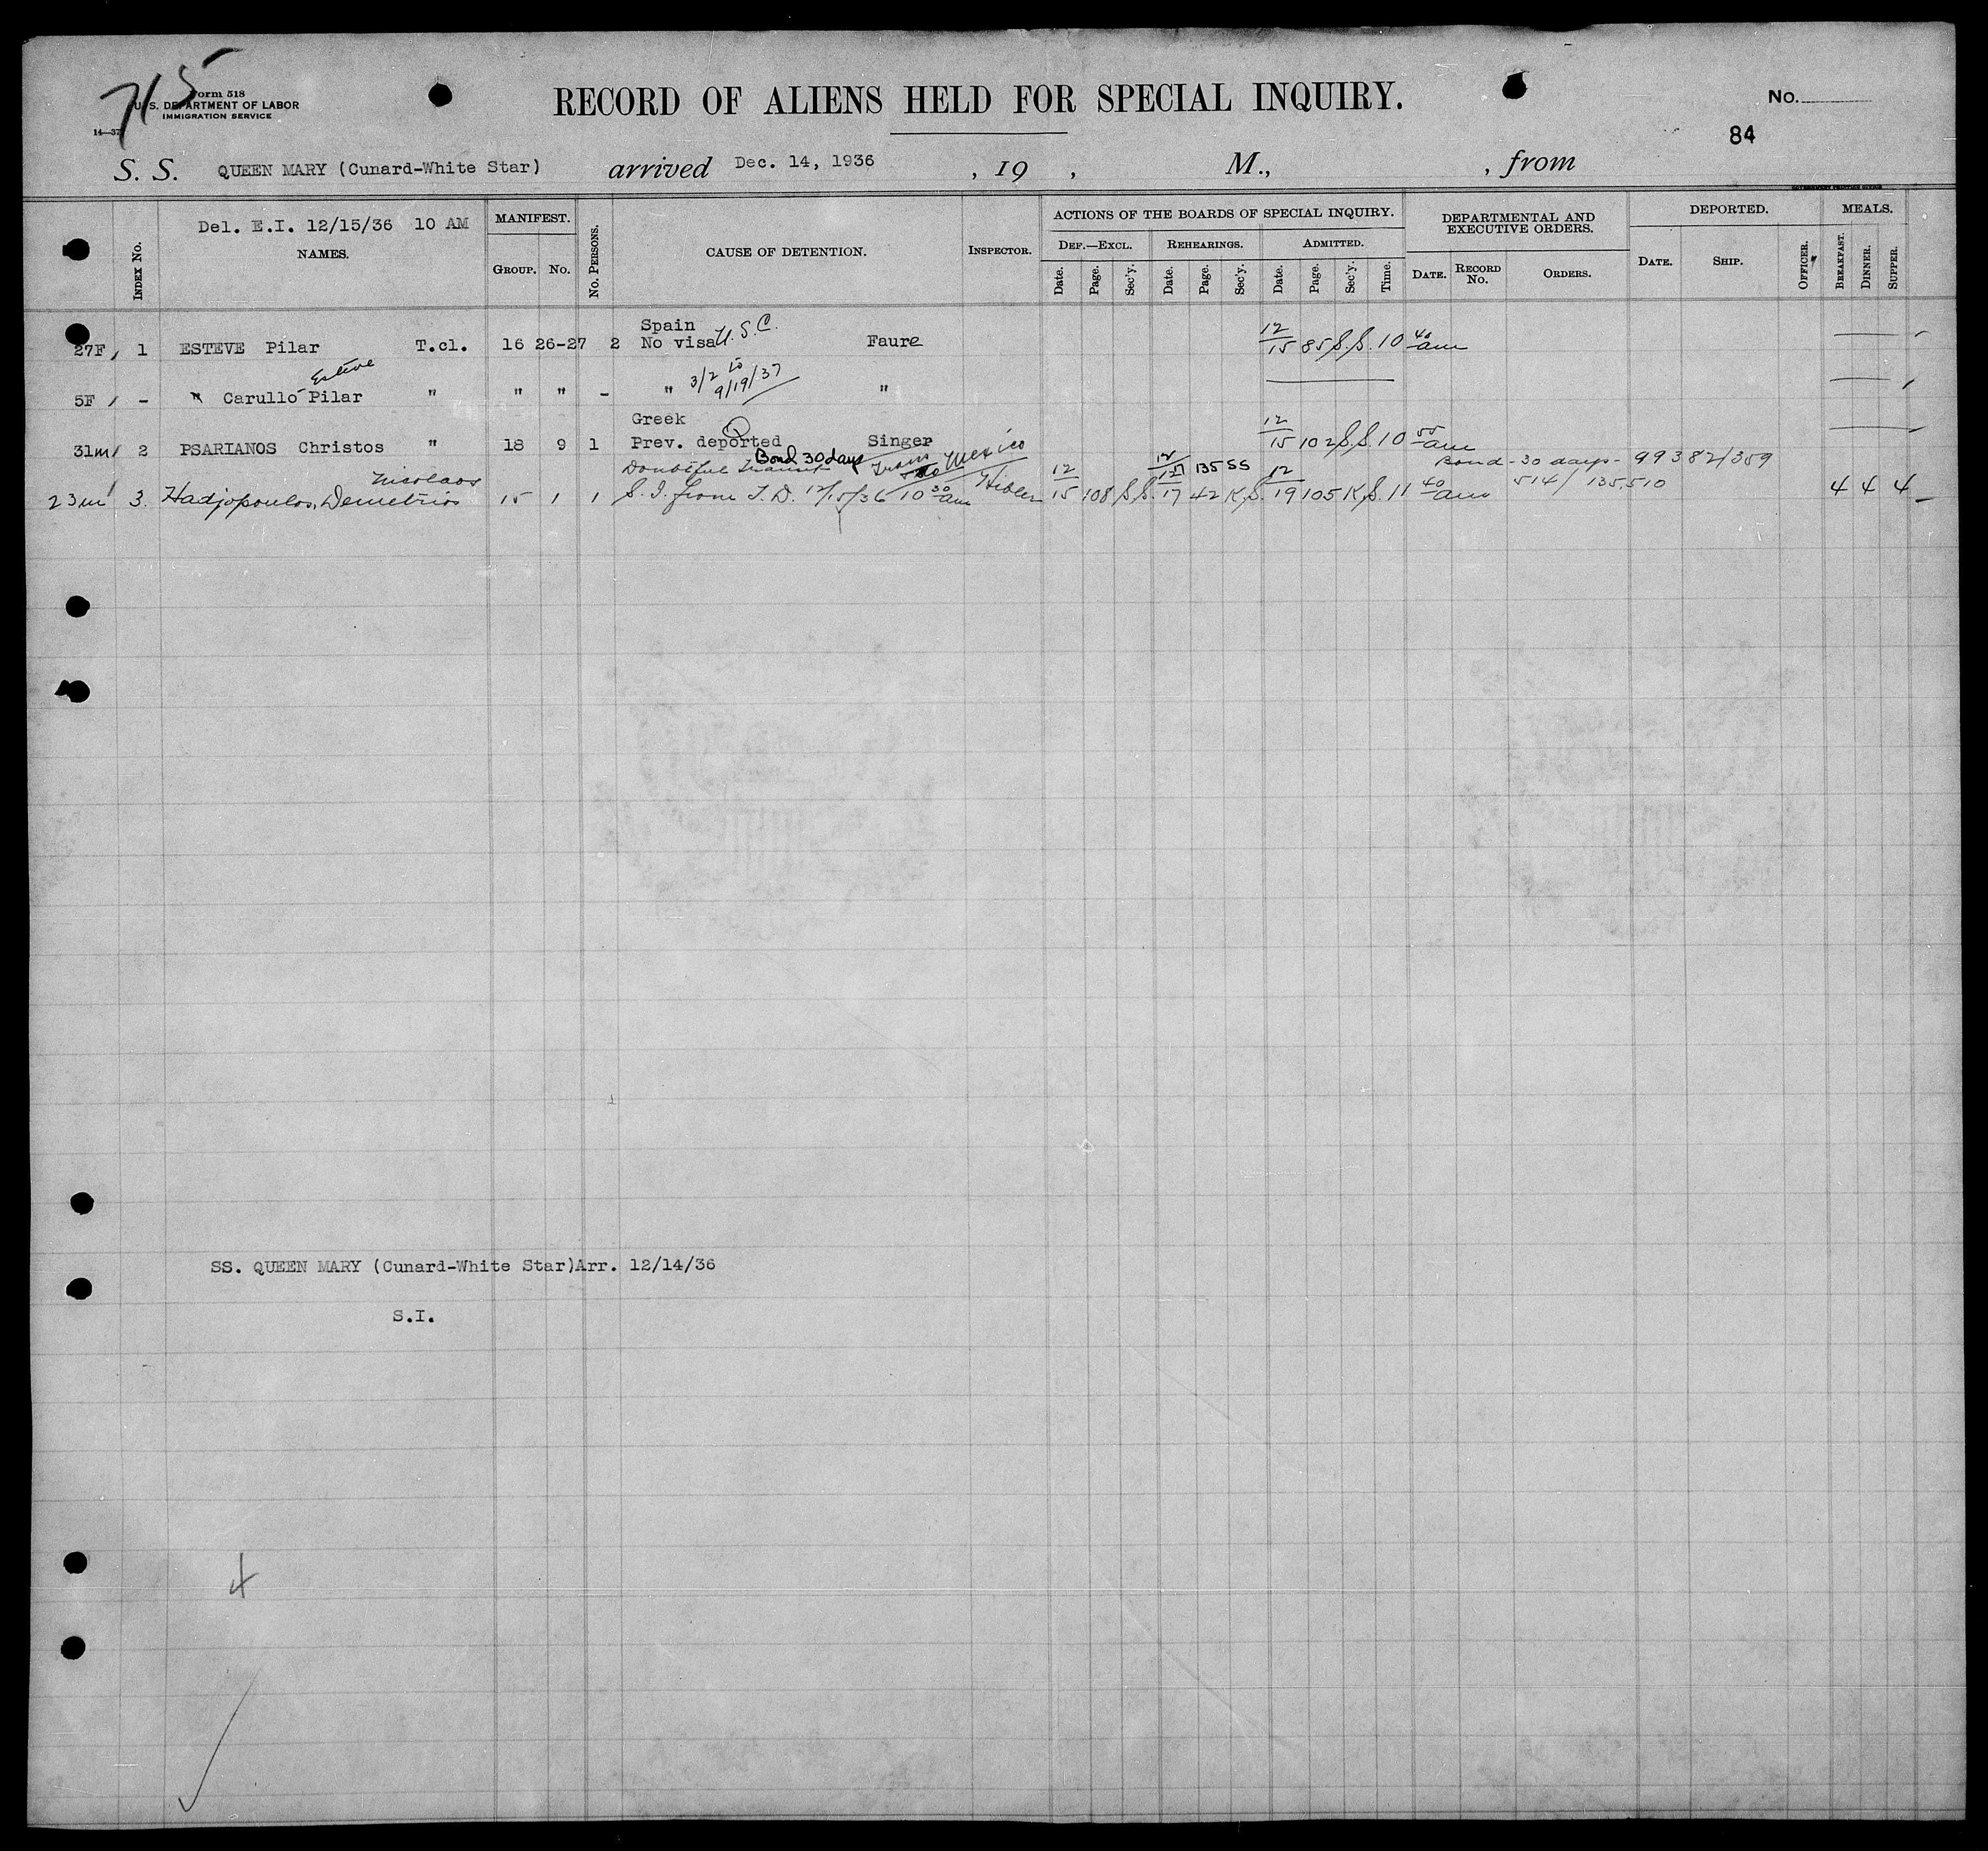 715
Form 518
U. S. DEPARTMENT OF LABOR
IMMIGRATION SERVICE
RECORD OF ALIENS HELD FOR SPECIAL INQUIRY.
No.
84
S. S. QUEEN MARY (Cunard-White Star) arrived Dec. 14, 1936 , 19 , M., , from
Del. E.I. 12/15/36 10 AM
INDEX NO. NAMES. MANIFEST. GROUP. NO. NO. PERSONS. CAUSE OF DETENTION. INSPECTOR. ACTIONS OF THE BOARDS OF SPECIAL INQUIRY. DEF.—EXCL. Date. Page. Sec'y. REHEARINGS. Date. Page. Sec'y. ADMITTED. Date. Page. Sec'y. Time. DEPARTMENTAL AND EXECUTIVE ORDERS. DATE. RECORD NO. ORDERS. DEPORTED. DATE. SHIP. OFFICER. MEALS. BREAKFAST. DINNER. SUPPER.
Spain
27F 1 ESTEVE Pilar T.cl. 16 26-27 2 No visa U.S.C. Faure 12/15 85 S.S. 10 40 am
Esteve
5F - " Carullo Pilar " " " - " 3/2 to 9/19/37 "
Greek
31m 2 PSARIANOS Christos " 18 9 1 Prev. deported Singer 12/15 102 S.S. 10 55 am
Doubtful Transit Bond 30 days Trans to Mexico 12/17 135 SS Bond - 30 days - 99382/359
Nicolaos
23m 3. Hadjopoulos, Demetrios 15 1 1 S.I. from T.D. 12/15/36 10 30 am Hibler 12/15 108 S.S. 17 42 K.S. 12/19 105 K.S. 11 40 am 514/ 135510 4 4 4
SS. QUEEN MARY (Cunard-White Star)Arr. 12/14/36
S.I.
4